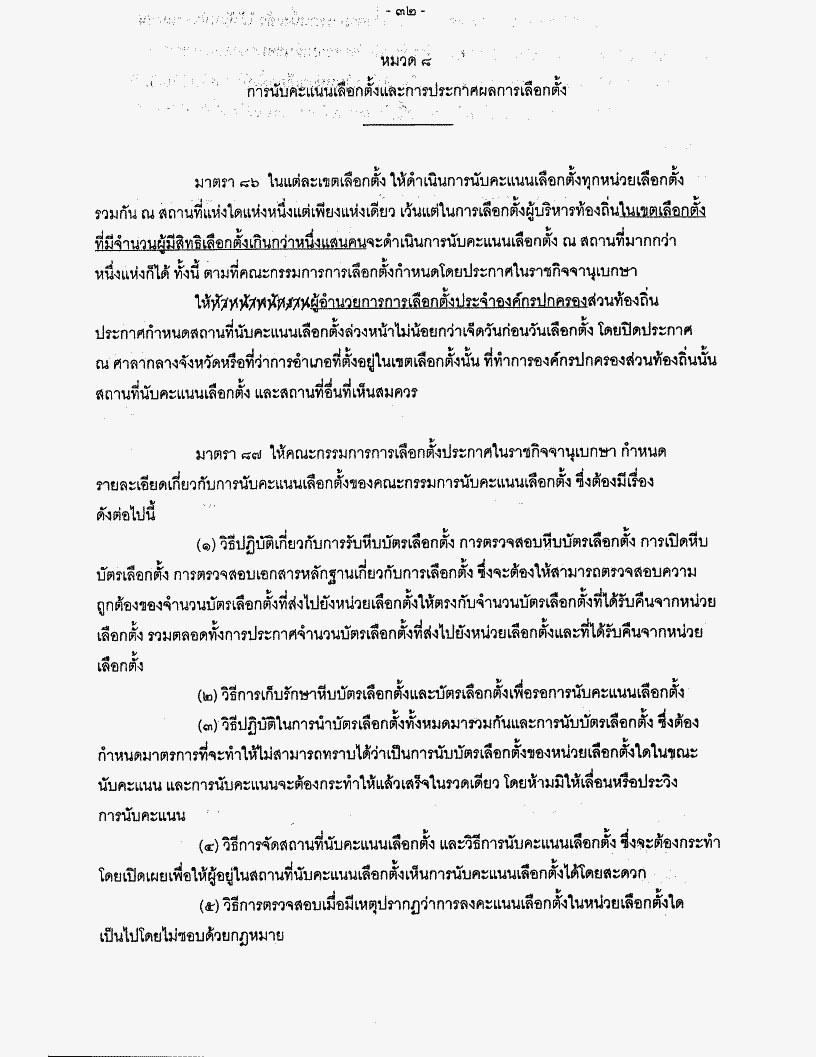 - ๓๒ -
หมวด ๘
การนับคะแนนเลือกตั้งและการประกาศผลการเลือกตั้ง
มาตรา ๘๖ ในแต่ละเขตเลือกตั้ง ให้ดำเนินการนับคะแนนเลือกตั้งทุกหน่วยเลือกตั้ง
รวมกัน ณ สถานที่แห่งใดแห่งหนึ่งแต่เพียงแห่งเดียว เว้นแต่ในการเลือกตั้งผู้บริหารท้องถิ่นในเขตเลือกตั้ง
ที่มีจำนวนผู้มีสิทธิเลือกตั้งเกินกว่าหนึ่งแสนคนจะดำเนินการนับคะแนนเลือกตั้ง ณ สถานที่มากกว่า
หนึ่งแห่งก็ได้ ทั้งนี้ ตามที่คณะกรรมการการเลือกตั้งกำหนดโดยประกาศในราชกิจจานุเบกษา
ให้หัวหน้าพนักงานผู้อำนวยการการเลือกตั้งประจำองค์กรปกครองส่วนท้องถิ่น
ประกาศกำหนดสถานที่นับคะแนนเลือกตั้งล่วงหน้าไม่น้อยกว่าเจ็ดวันก่อนวันเลือกตั้ง โดยปิดประกาศ
ณ ศาลากลางจังหวัดหรือที่ว่าการอำเภอที่ตั้งอยู่ในเขตเลือกตั้งนั้น ที่ทำการองค์กรปกครองส่วนท้องถิ่นนั้น
สถานที่นับคะแนนเลือกตั้ง และสถานที่อื่นที่เห็นสมควร
มาตรา ๘๗ ให้คณะกรรมการการเลือกตั้งประกาศในราชกิจจานุเบกษา กำหนด
รายละเอียดเกี่ยวกับการนับคะแนนเลือกตั้งของคณะกรรมการนับคะแนนเลือกตั้ง ซึ่งต้องมีเรื่อง
ดังต่อไปนี้
(๑) วิธีปฏิบัติเกี่ยวกับการรับหีบบัตรเลือกตั้ง การตรวจสอบหีบบัตรเลือกตั้ง การเปิดหีบ
บัตรเลือกตั้ง การตรวจสอบเอกสารหลักฐานเกี่ยวกับการเลือกตั้ง ซึ่งจะต้องให้สามารถตรวจสอบความ
ถูกต้องของจำนวนบัตรเลือกตั้งที่ส่งไปยังหน่วยเลือกตั้งให้ตรงกับจำนวนบัตรเลือกตั้งที่ได้รับคืนจากหน่วย
เลือกตั้ง รวมตลอดทั้งการประกาศจำนวนบัตรเลือกตั้งที่ส่งไปยังหน่วยเลือกตั้งและที่ได้รับคืนจากหน่วย
เลือกตั้ง
(๒) วิธีการเก็บรักษาหีบบัตรเลือกตั้งและบัตรเลือกตั้งเพื่อรอการนับคะแนนเลือกตั้ง
(๓) วิธีปฏิบัติในการนำบัตรเลือกตั้งทั้งหมดมารวมกันและการนับบัตรเลือกตั้ง ซึ่งต้อง
กำหนดมาตรการที่จะทำให้ไม่สามารถทราบได้ว่าเป็นการนับบัตรเลือกตั้งของหน่วยเลือกตั้งใดในขณะ
นับคะแนน และการนับคะแนนจะต้องกระทำให้แล้วเสร็จในรวดเดียว โดยห้ามมิให้เลื่อนหรือประวิง
การนับคะแนน
(๔) วิธีการจัดสถานที่นับคะแนนเลือกตั้ง และวิธีการนับคะแนนเลือกตั้ง ซึ่งจะต้องกระทำ
โดยเปิดเผยเพื่อให้ผู้อยู่ในสถานที่นับคะแนนเลือกตั้งเห็นการนับคะแนนเลือกตั้งได้โดยสะดวก
(๕) วิธีการตรวจสอบเมื่อมีเหตุปรากฏว่าการลงคะแนนเลือกตั้งในหน่วยเลือกตั้งใด
เป็นไปโดยไม่ชอบด้วยกฎหมาย